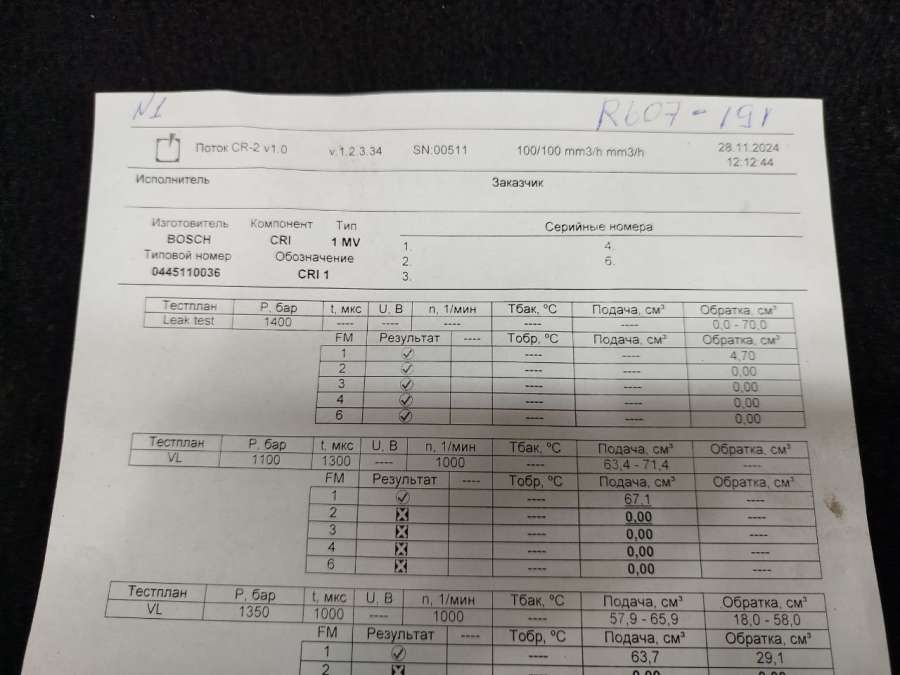 N1 R607-191
Поток CR-2 v1.0 v.1.2.3.34 SN:00511 100/100 mm3/h mm3/h 28.11.2024
12:12:44
Исполнитель Заказчик
Изготовитель Компонент Тип Серийные номера
BOSCH CRI 1 MV 1. 4.
Типовой номер Обозначение 2. 6.
0445110036 CRI 1 3.
Тестплан P, бар t, мкс U, В n, 1/мин Tбак, ºC Подача, см³ Обратка, см³
Leak test 1400 ---- ---- ---- ---- ---- 0,0 - 70,0
FM Результат ---- Tобр, ºC Подача, см³ Обратка, см³
1 ✓ ---- ---- 4,70
2 ✓ ---- ---- 0,00
3 ✓ ---- ---- 0,00
4 ✓ ---- ---- 0,00
6 ✓ ---- ---- 0,00
Тестплан P, бар t, мкс U, В n, 1/мин Tбак, ºC Подача, см³ Обратка, см³
VL 1100 1300 ---- 1000 ---- 63,4 - 71,4 ----
FM Результат ---- Tобр, ºC Подача, см³ Обратка, см³
1 ✓ ---- 67,1 ----
2 ☒ ---- 0,00 ----
3 ☒ ---- 0,00 ----
4 ☒ ---- 0,00 ----
6 ☒ ---- 0,00 ----
Тестплан P, бар t, мкс U, В n, 1/мин Tбак, ºC Подача, см³ Обратка, см³
VL 1350 1000 ---- 1000 ---- 57,9 - 65,9 18,0 - 58,0
FM Результат ---- Tобр, ºC Подача, см³ Обратка, см³
1 ✓ ---- 63,7 29,1
2 ☒ ---- 0,00 0,00